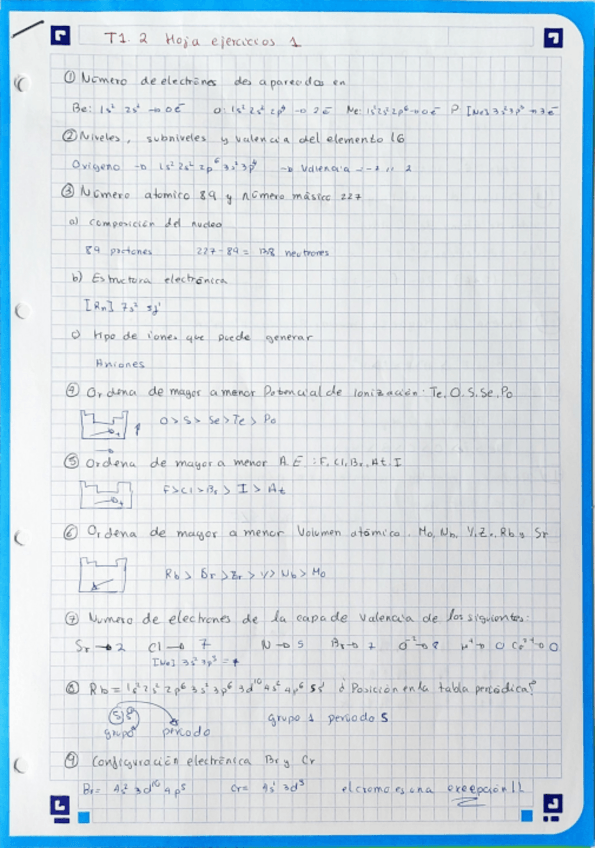 T1.2 Hoja ejercicios 1
① Número de electrones desapareados en
Be: 1s² 2s² → 0e⁻ O: 1s² 2s² 2p⁴ → 2e⁻ Ne: 1s²2s²2p⁶ → 0e⁻ P: [Ne] 3s²3p³ → 3e⁻
② Niveles, subniveles y valencia del elemento 16
Oxígeno → 1s² 2s² 2p⁶ 3s² 3p⁴ → Valencia = -2 ,, 2
③ Número atomico 89 y número másico 227
a) Composición del nucleo
89 protones 227-89 = 138 neutrones
b) Estructura electrónica
[Rn] 7s²
c) tipo de iones que puede generar
Aniones
④ Ordena de mayor a menor Potencial de Ionización: Te, O, S, Se, Po
O > S > Se > Te > Po
⑤ Ordena de mayor a menor A.E: F, Cl, Br, At, I
F > Cl > Br > I > At
⑥ Ordena de mayor a menor Volumen atómico. Mo, Nb, Y, Zr, Rb y Sr
Rb > Sr > Zr > Y > Nb > Mo
⑦ Numero de electrones de la capa de Valencia de los siguientes:
Sr → 2 Cl → 7 N → 5 Br → 7 O⁻² → 8 H⁺ → 0 → 0
[Ne] 3s² 3p⁵ = 7
⑧ Rb = 1s² 2s² 2p⁶ 3s² 3p⁶ 3d¹⁰ 4s² 4p⁶ 5s¹ ¿Posición en la tabla periódica?
5s¹
grupo periodo grupo 1 periodo 5
⑨ Configuración electrónica Br y Cr
Br = 4s² 3d¹⁰ 4p⁵ Cr = 4s¹ 3d⁵ el cromo es una excepción!!